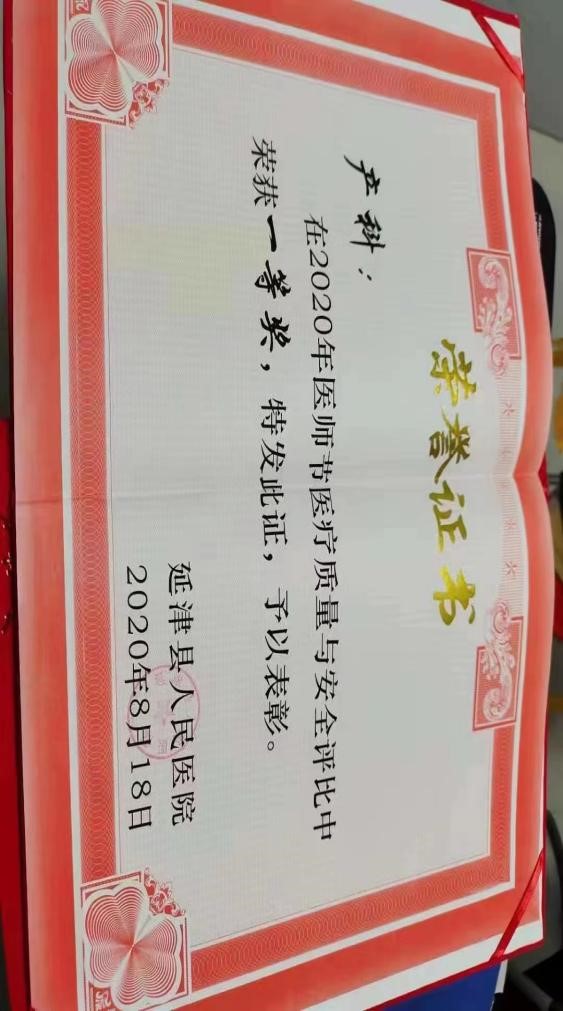 荣誉证书
产科：
在2020年医师节医疗质量与安全评比中
荣获一等奖，特发此证，予以表彰。
延津县人民医院
2020年8月18日